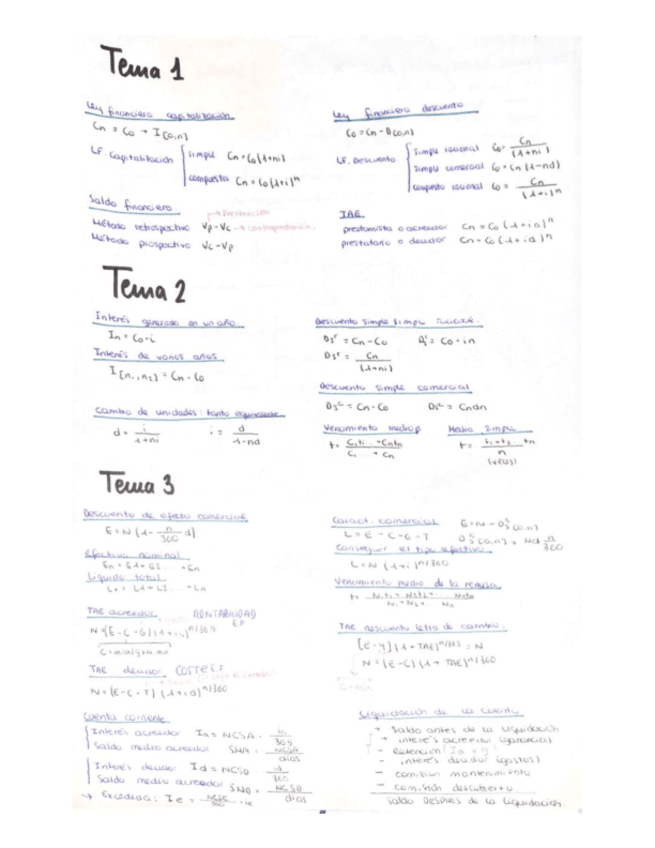 Tema 1
Ley financiera capitalización
Cn = Co + I[0,n]
LF. Capitalización
simple Cn = Co(1+ni)
compuesta Cn = Co(1+i)^n
Saldo financiero.
→ Prestación
Método retrospectivo Vp-Vc → contraprestación.
Método prospectivo Vc-Vp
Ley financiera descuento
Co = Cn - D[0,n]
LF. Descuento
simple racional Co = Cn/(1+ni)
simple comercial Co = Cn (1-nd)
compuesto racional Co = Cn/(1+i)^n
TAE.
prestamista o acreedor Cn = Co (1+ia)^n
prestatario o deudor Cn = Co (1+id)^n
Tema 2
Interés generado en un año.
In = Co·i
Interés de varios años.
I[n1,n2] = Cn - Co
Cambio de unidades: tanto equivalente
d = i/1+ni i = d/1-nd
Descuento simple
Ds^r = Cn - Co = Co·in
Ds^r = Cn/(1+ni)
Descuento simple comercial
Ds^c = Cn - Co Ds^c = Cndn
Vencimiento medio
t = C1t1...+Cntn/C1...+Cn
Medio simple
t = t1+t2...tn/n
Tema 3
Descuento de efecto comercial
E = N (1 - n/360 d)
Efectivo nominal
En = E1+E2...+En
Líquido total
Lt = L1+L2...+Ln
TAE acreedor RENTABILIDAD
N = (E-C-G)(1+ia)^n/365
TAE deudor COSTE
N = (E-C-T) (1+id)^n/360
Cuenta corriente
Interés acreedor Ia = NCSA · ia/365
Saldo medio acreedor SMA = NCSA/días
Interés deudor Id = NCSD ·
Saldo medio acreedor SMD = NCSD/días
→ Excedido: Ie =
Caract. comercial
L = E - C - G - T
E = N - Ds[0,n]
Ds[0,n] = Nd n/360
Conseguir el tipo efectivo
L = N (1+i)^n/360
Vencimiento medio de la remesa
t = N1t1+N2t2+... Nntn/N1+N2+... Nn
TAE descuento letra de cambio.
N = (E-C)(1+TAE)^n/360
Liquidación de la cuenta
+ Saldo antes de la liquidación
+ interés acreedor (ganancia)
- Retención
- interés deudor (gastos)
- comisión mantenimiento
- comisión descubierto
Saldo después de la liquidación.